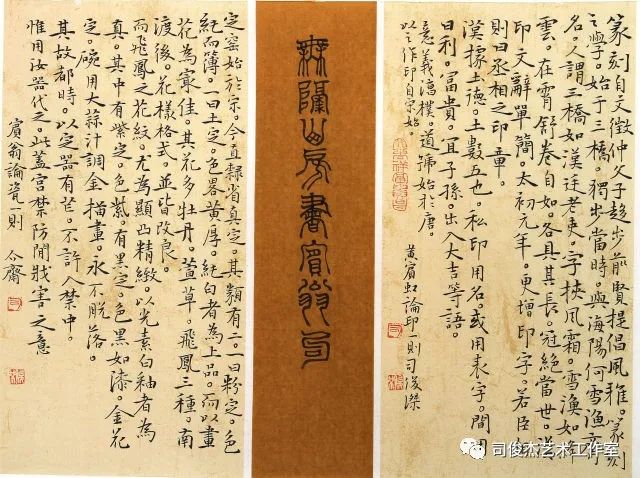 篆刻自文徵仲父子趁步前賢提倡風雅。篆刻
之學。始于三橋。獨步當時。與海陽何雪漁齊
名。人謂三橋如漢廷老吏。字挾風霜。雪漁如
雲。在霄舒卷自如。各具其長。冠絕當世。漢
印文辭單簡。太初元年。更增印字。若臣
則曰丞相之印章。
漢據土德。土數五也。私印用名。或用表字。間用
日利。富貴。宜子孫。出入大吉等語。
意義渾樸。道號始於唐。
以之作印自宋始
黃賓虹論印一則司俊杰
無隱山房書賓翁句
定窑始於宗。今直隸省真定。其類有二。一曰粉定。色
純而薄。一曰土定。色畧黃厚。純白者為上品。而以畫
花為寂佳。其花多牡丹。萱草。飛鳳三種。南
渡後。花樣格式並皆改良。
而飛鳳之花紋。尤為顯凸精緻。以光素白釉者為
真。其中有紫定。色紫。有黑定。色黑如漆。金花
定。碗用大蒜汁調金描畫。永不脫落。
其故都時。以定器有芒。不許入禁中。
惟用汝器代之。此蓋宮禁防閑戕害。之意
賓翁論瓷一則
司俊杰艺术工作室